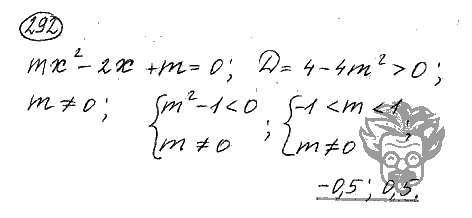 292
mx² - 2x + m = 0; D = 4 - 4m² > 0;
m ≠ 0; { m² - 1 < 0 ; { -1 < m < 1 ;
m ≠ 0 m ≠ 0
-0,5; 0,5.